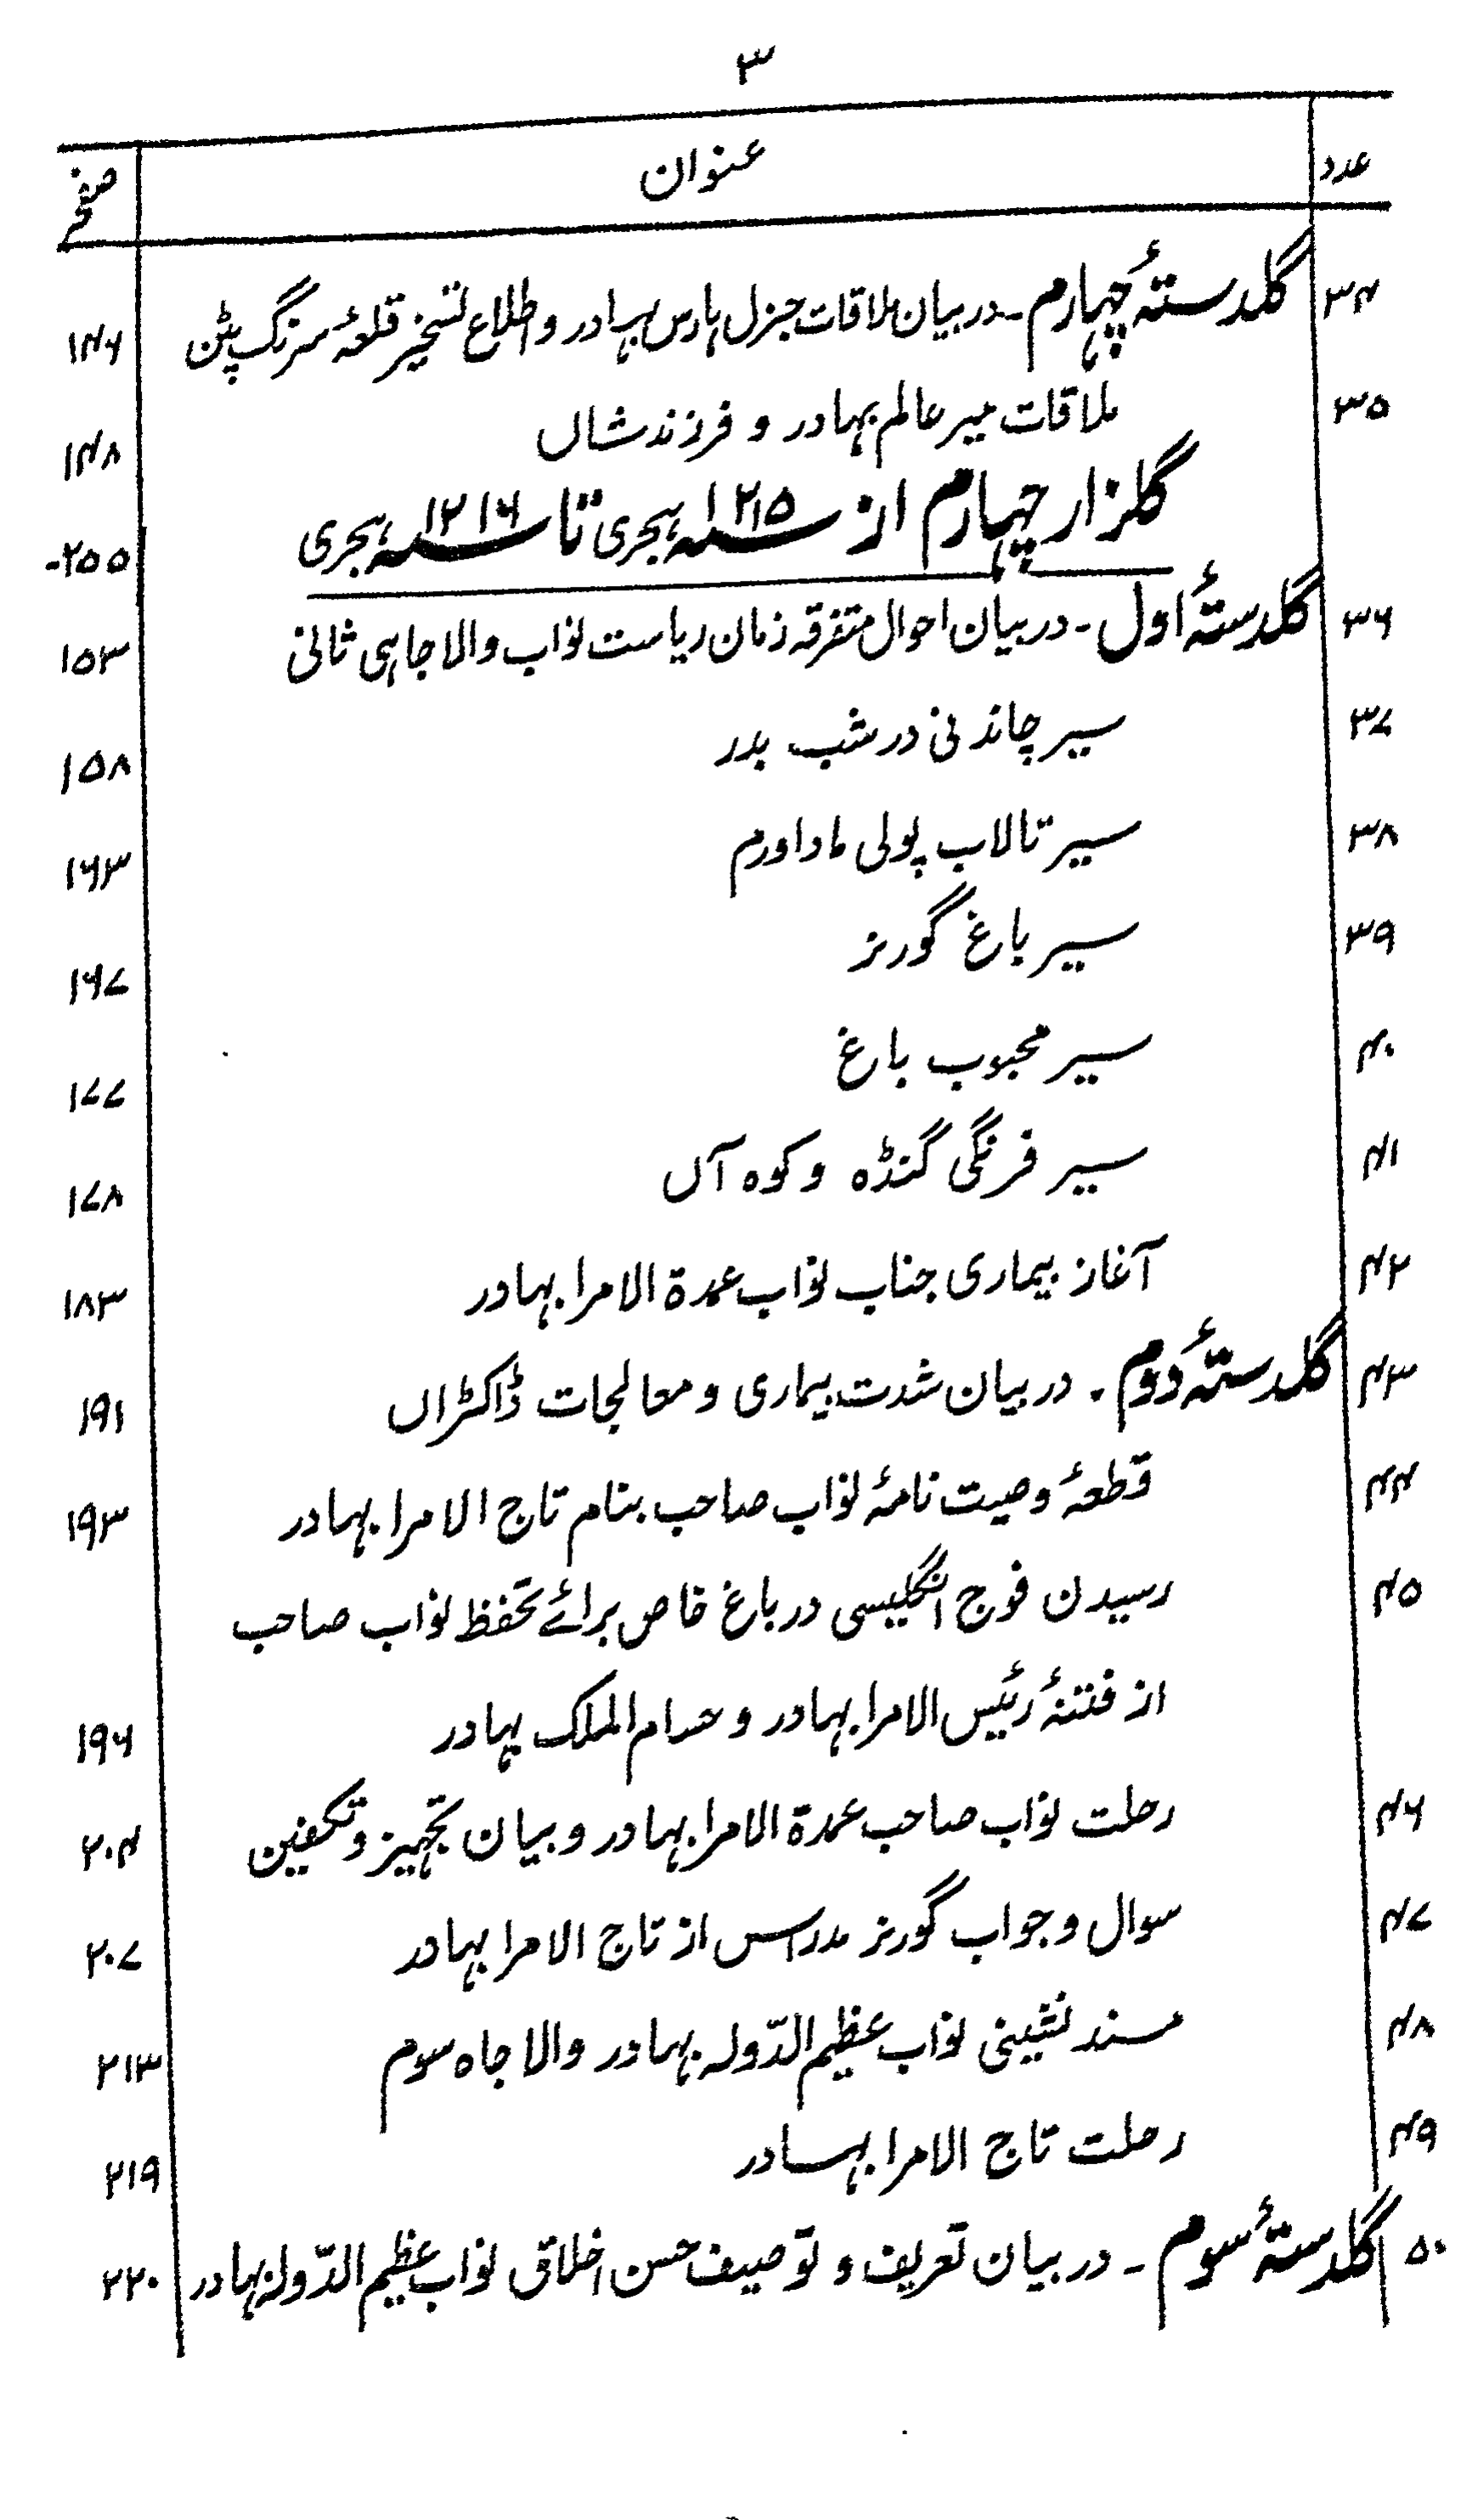 ۳
عدد عنوان صفحہ
۳۴ گلدستۂ چہارم ۔ در بیان ملاقات جنرل ہارس بہادر و اطلاع تسخیر قلعۂ سرنگ پٹن ۱۴۶
۳۵ ملاقات میر عالم بہادر و فرزند شاں ۱۴۸
گلزار چہارم از ۱۲۱۵؁ ہجری تا ۱۲۱۶؁ ہجری ۲۵۵-
۳۶ گلدستۂ اول ۔ در بیان احوال متفرقہ زمان ریاست نواب والاجاہی ثانی ۱۵۳
۳۷ سیر چاندنی در شب بدر ۱۵۸
۳۸ سیر تالاب پولی ماداورم ۱۶۳
۳۹ سیر باغ گورنر ۱۶۷
۴۰ سیر محبوب باغ ۱۷۷
۴۱ سیر فرنگی گنڈہ و کوہ آں ۱۷۸
۴۲ آغاز بیماری جناب نواب عمدۃ الامرا بہادر ۱۸۳
۴۳ گلدستۂ دوم ۔ در بیان شدت بیماری و معالجات ڈاکٹراں ۱۹۱
۴۴ قطعۂ وصیت نامۂ نواب صاحب بنام تاج الامرا بہادر ۱۹۳
۴۵ رسیدن فوج انگلیسی در باغ خاص برائے تحفظ نواب صاحب
از فتنۂ رئیس الامرا بہادر و حسام الملک بہادر ۱۹۶
۴۶ رحلت نواب صاحب عمدۃ الامرا بہادر و بیان تجہیز و تکفین ۲۰۴
۴۷ سوال و جواب گورنر مدراس از تاج الامرا بہادر ۲۰۷
۴۸ مسند نشینی نواب عظیم الدّولہ بہادر والاجاہ سوم ۲۱۳
۴۹ رحلت تاج الامرا بہادر ۲۱۹
۵۰ گلدستۂ سوم ۔ در بیان تعریف و توصیف حسن اخلاق نواب عظیم الدّولہ بہادر ۲۲۰